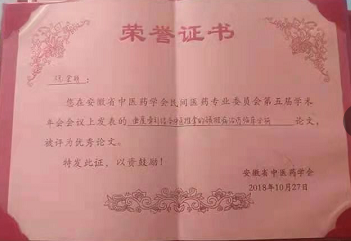 荣誉证书
您在安徽省中医药学会民间医药专业委员会第五届学术
年会会议上发表的 论文,
被评为优秀论文。
特发此证,以资鼓励!
安徽省中医药学会
2018年10月27日